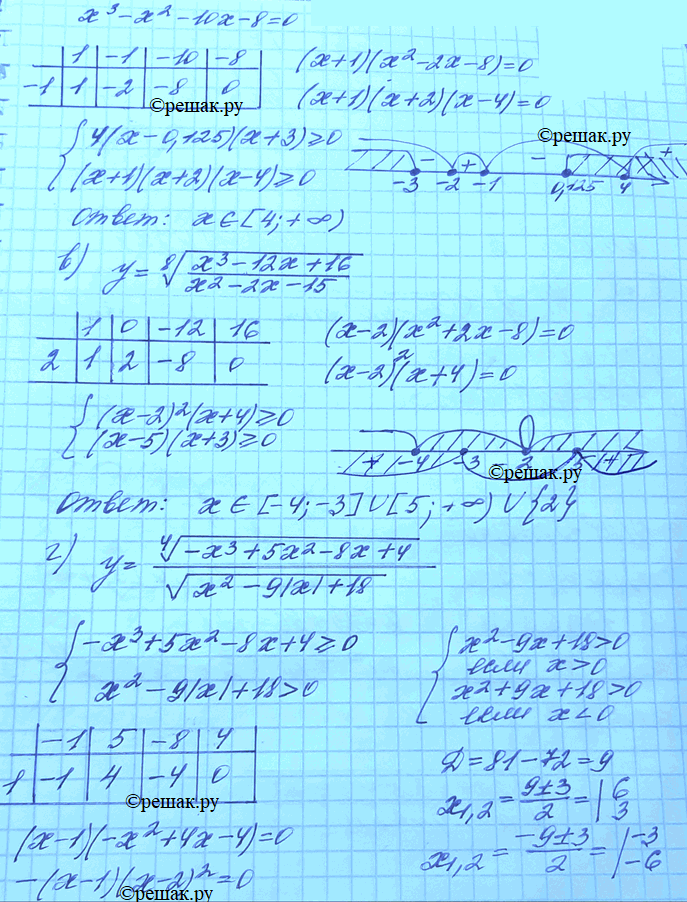 x³-x²-10x-8=0
1 | -1 | -10 | -8
-1 | 1 | -2 | -8 | 0
(x+1)(x²-2x-8)=0
(x+1)(x+2)(x-4)=0
©решак.ру
4(x-0,125)(x+3)≥0
(x+1)(x+2)(x-4)≥0
©решак.ру
- + - +
-3 -2 -1 0,125 4
Ответ: x∈[4;+∞)
в) y=⁸√(x³-12x+16)/(x²-2x-15)
1 | 0 | -12 | 16
2 | 1 | 2 | -8 | 0
(x-2)(x²+2x-8)=0
(x-2)²(x+4)=0
(x-2)²(x+4)≥0
(x-5)(x+3)≥0
+ -4 -3 2 5 +
©решак.ру
Ответ: x∈[-4;-3]∪[5;+∞)∪{2}
г) y=⁴√(-x³+5x²-8x+4)/√(x²-9|x|+18)
-x³+5x²-8x+4≥0
x²-9|x|+18>0
x²-9x+18>0
если x>0
x²+9x+18>0
если x<0
-1 | 5 | -8 | 4
1 | -1 | 4 | -4 | 0
©решак.ру
(x-1)(-x²+4x-4)=0
-(x-1)(x-2)²=0
©решак.ру
Д=81-72=9
x₁,₂=(9±3)/2=| 6 3
x₁,₂=(-9±3)/2=| -3 -6